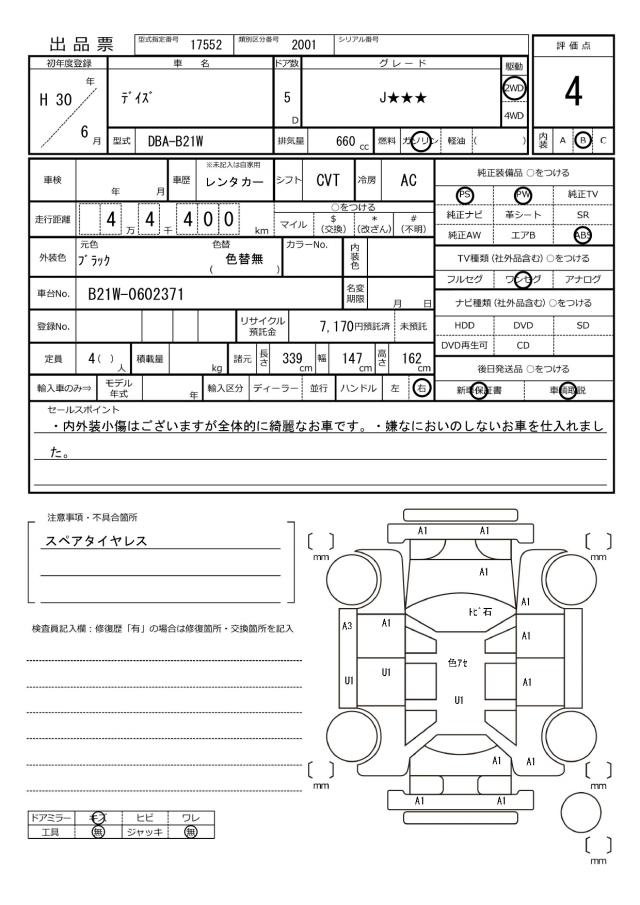 出品票 型式指定番号 17552 類別区分番号 2001 シリアル番号
評価点
4
初年度登録 車名 ドア数 グレード 駆動
H 30 年 6 月 ﾃﾞｲｽﾞ 5 D J★★★ 2WD 4WD
型式 DBA-B21W 排気量 660 cc 燃料 ガソリン 軽油 ( )
内装 A B C
車検 年 月 車歴 ※未記入は自家用 レンタカー シフト CVT 冷房 AC
走行距離 4 万 4 千 4 0 0 km
○をつける
マイル $ (交換) * (改ざん) # (不明)
外装色 元色 ﾌﾞﾗｯｸ 色替 ( 色替無 ) カラーNo. 内装色
車台No. B21W-0602371 名変期限 月 日
登録No. リサイクル預託金 7,170円預託済 未預託
定員 4( ) 人 積載量 kg 諸元 長さ 339 cm 幅 147 cm 高さ 162 cm
輸入車のみ⇒ モデル年式 年 輸入区分 ディーラー 並行 ハンドル 左 右
純正装備品 ○をつける
PS PW 純正TV
純正ナビ 革シート SR
純正AW エアB ABS
TV種類 (社外品含む) ○をつける
フルセグ ワンセグ アナログ
ナビ種類 (社外品含む) ○をつける
HDD DVD SD
DVD再生可 CD
後日発送品 ○をつける
新車保証書 車輌取説
セールスポイント
・内外装小傷はございますが全体的に綺麗なお車です。・嫌なにおいのしないお車を仕入れまし
た。
注意事項・不具合箇所
スペアタイヤレス
検査員記入欄：修復歴「有」の場合は修復箇所・交換箇所を記入
ドアミラー キズ ヒビ ワレ
工具 無 ジャッキ 無
A1 A1
mm mm
A1
A1
ﾄﾋﾞ石
A3 A1 A1
色ｱｾ
U1 U1 A1
U1
A1 A1
mm mm
A1 A1
mm